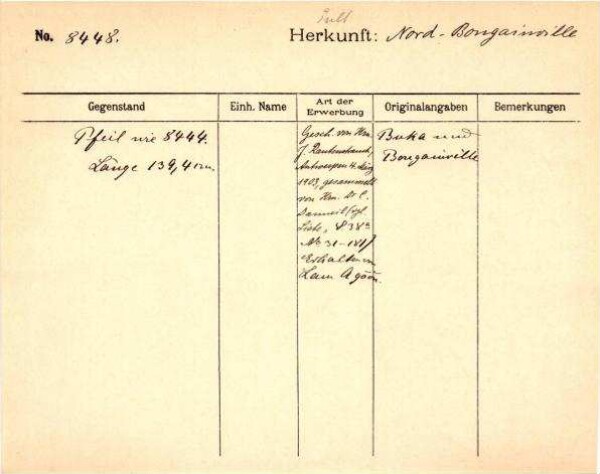 No. 8448.
Herkunft: Nord-Bougainville
Gegenstand
Einh. Name
Art der Erwerbung
Originalangaben
Bemerkungen
Pfeil wie 8444.
Länge 139,4 cm.
Gesch. von Hrn.
J. Rautenstrauch,
Antwerpen
1903, gesammelt
von Hrn.
Liste,
No 31-181)
Erhalten
Buka und
Bougainville